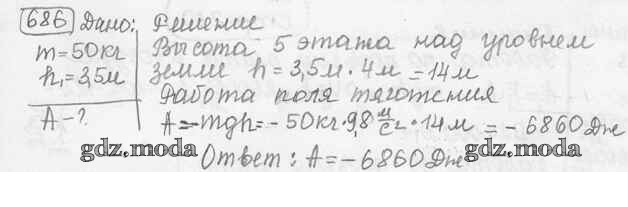 686. Дано: Решение
m=50кг Высота 5 этажа над уровнем
h₁=3,5м земли h=3,5м·4м=14м
Работа поля тяготения
A-? A=-mgh=-50кг·9,8 м/с²·14м=-6860Дж
gdz.moda gdz.moda
Ответ: A=-6860Дж